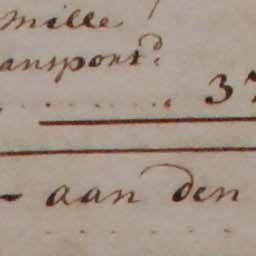 mille
ansport?
37
- aan den